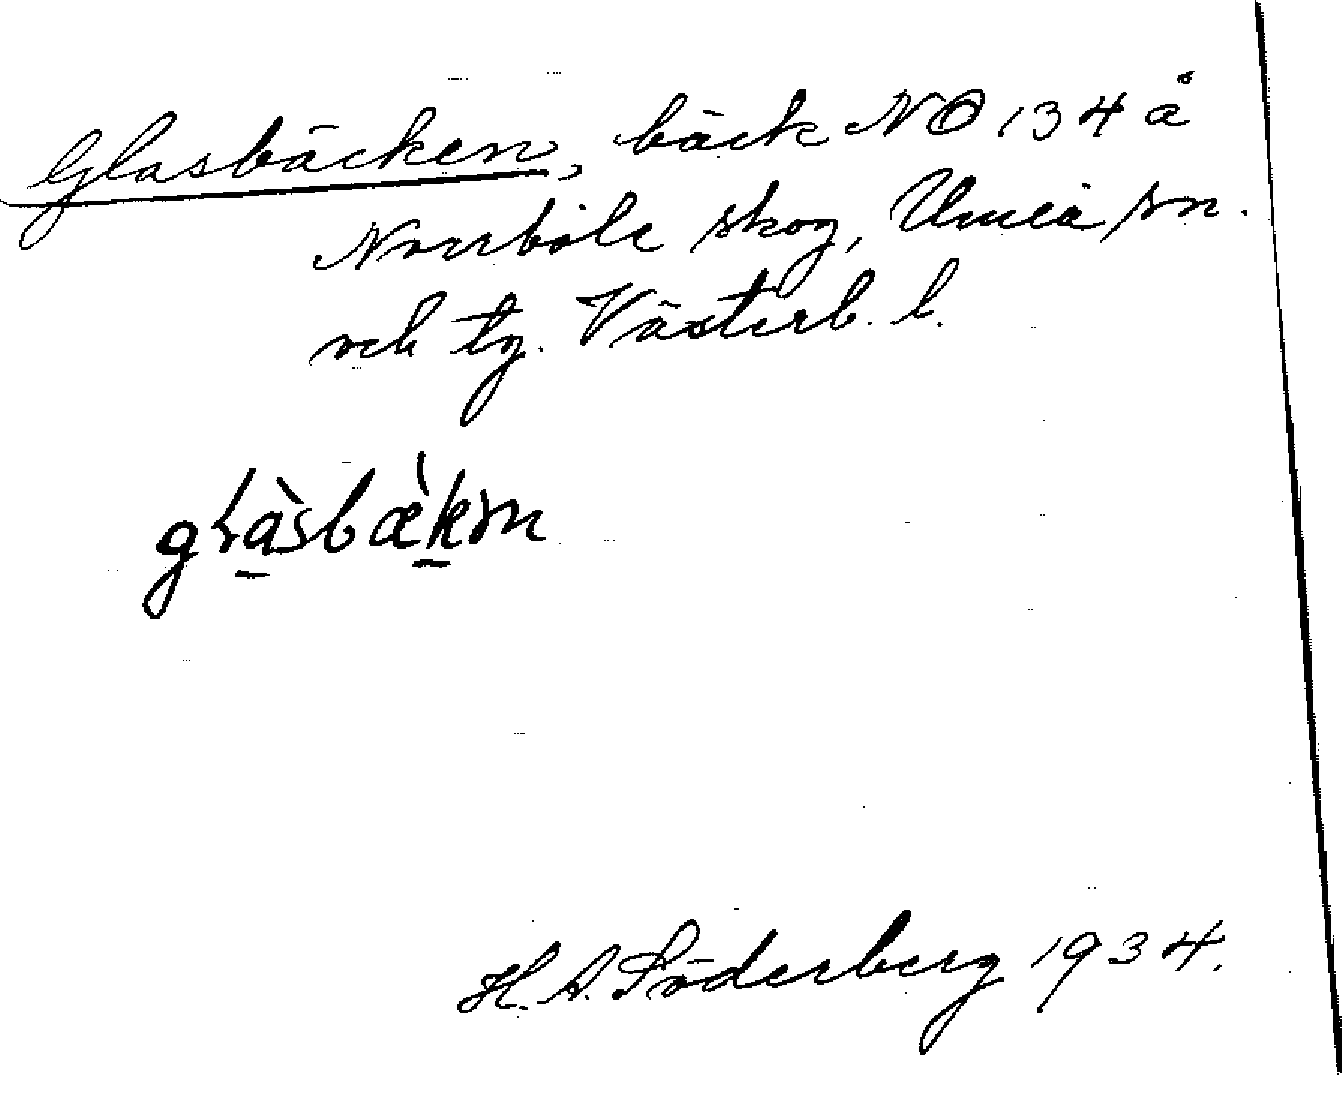 Glasbäcken, bäck NO 134 å
Norrböle skog, Umeå sn.
och tg. Västerb. l.
H. A. Söderberg 1934.